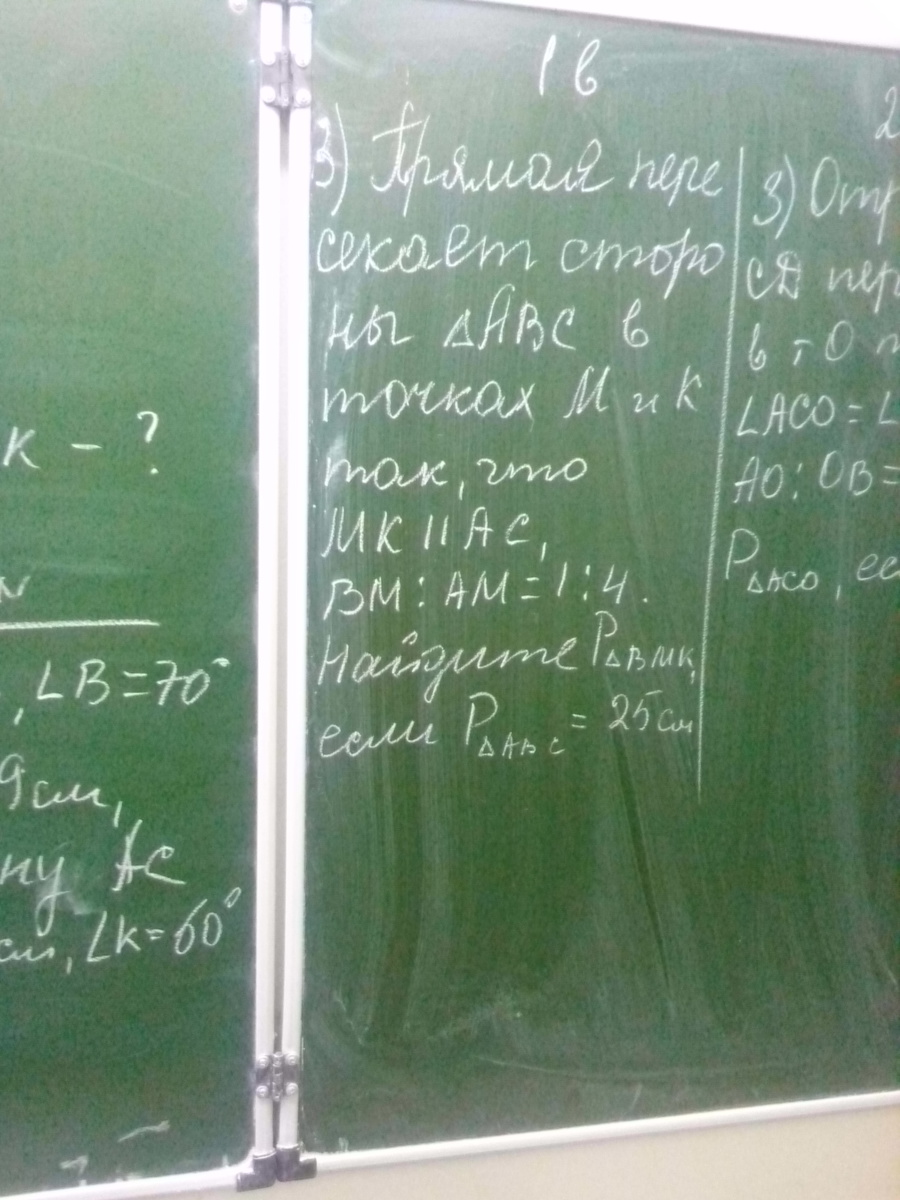 К - ?
, ∠B=70°
9см,
ну АС
см, ∠K=60°
1 в
3) Прямая пере
секает сторо
ны △АВС в
точках М и К
так, что
МК || АС,
ВМ : АМ = 1 : 4.
Найдите P△BMK,
если P△ABC = 25см
2
3) Отр
СД пер
в т О п
∠ACO = ∠
AO : OB =
P△ACO, ес